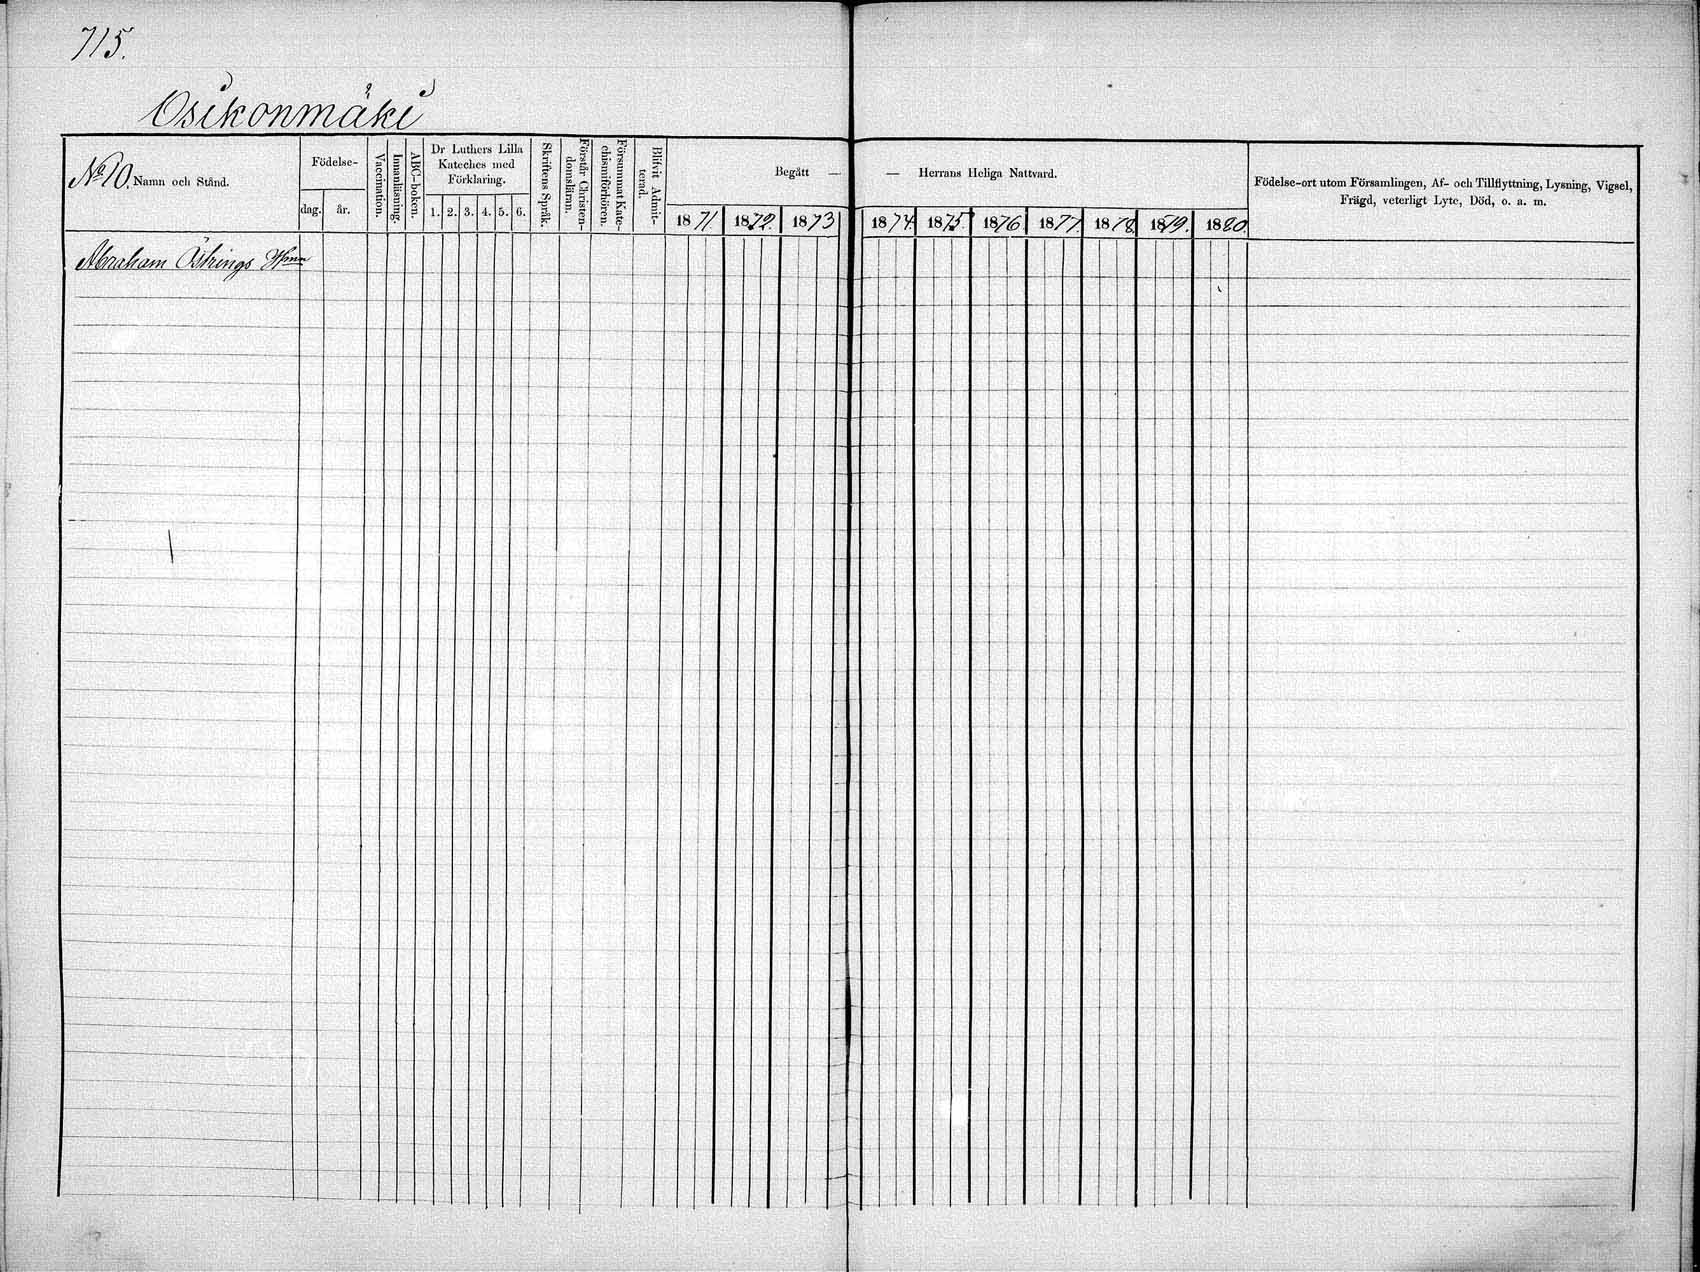 715.
Osikonmäki
No 10. Namn och Stånd.
Födelse-
dag. år.
Vaccination.
Innanläsning.
ABC-boken.
Dr Luthers Lilla
Kateches med
Förklaring.
1. 2. 3. 4. 5. 6.
Skriftens Språk.
Förstår Christen-
domsläran.
Försummat Kate-
chismiförhören.
Blifvit Admit-
terad.
Begått — — Herrans Heliga Nattvard.
1871. 1872. 1873 1874. 1875. 1876. 1877. 1878. 1879. 1880.
Födelse-ort utom Församlingen, Af- och Tillflyttning, Lysning, Vigsel,
Frägd, veterligt Lyte, Död, o. a. m.
Abraham Östrings